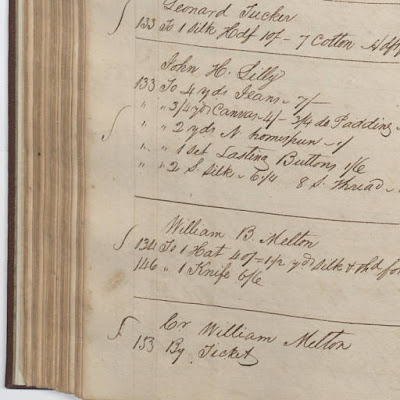 Leonard Tucker
133 To 1 Silk Hdf 10/- 7 Cotton Hdf
John H. Lilly
133 To 4 yds Jeans - 7/-
" " 3/4 yd Canvas - 4/- 3/4 do Padding -
" " 2 yds N. homespun - 1/
" " 1 set Lasting Buttons 1/6
" " 2 S. Silk - 8 S. Thread -
William B. Melton
134 To 1 Hat 40/- 1/2 yd Silk & thd for
146 " 1 Knife 6/6
Cr William Melton
153 By Ticket